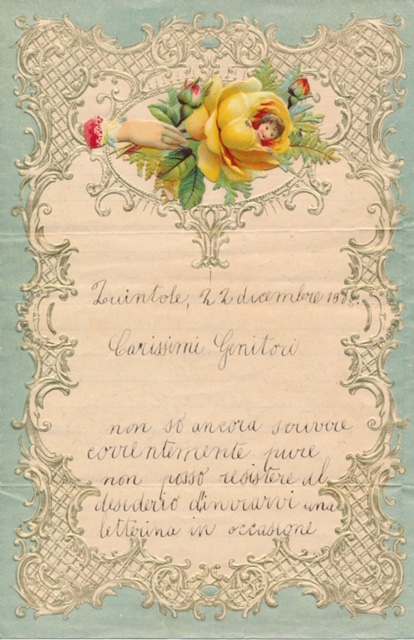 Quintole, 22 dicembre
Carissimi Genitori
non so ancora scrivere
correntemente pure
non posso resistere al
desiderio d'inviarvi una
letterina in occasione